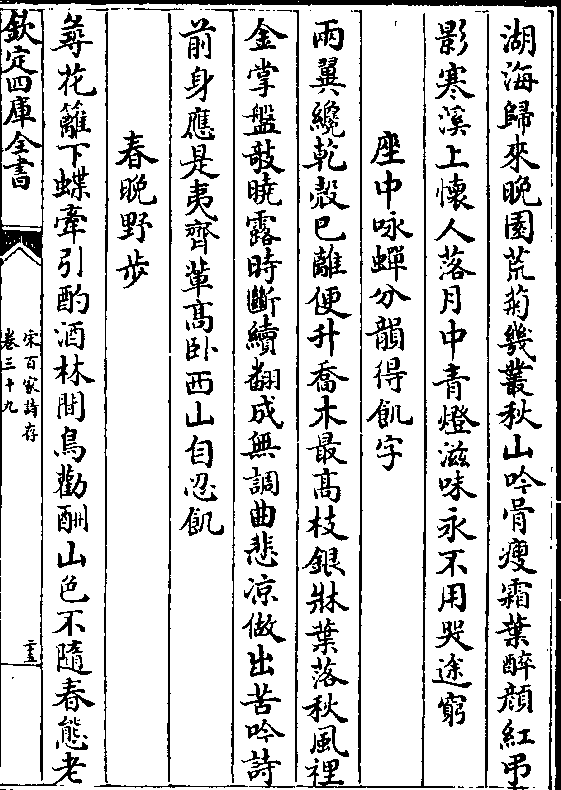 湖海歸來晚園荒菊幾叢秋山吟骨瘦霜葉醉顔紅弔
影寒溪上懷人落月中青燈滋味永不用哭途窮
座中咏蟬分韻得飢字
兩翼纔乾殻已離便升喬木最髙枝銀牀葉落秋風裡
金掌盤敧曉露時斷續翻成無調曲悲凉做出苦吟詩
前身應是夷齊輩髙卧西山自忍飢
春晚野步
尋花籬下蝶牽引酌酒林間鳥勸酬山色不隨春態老
欽定四庫全書
宋百家詩存
卷三十九